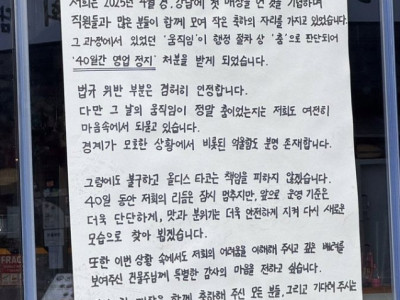 저희는 2025년 4월 중, 강남에 첫 매장을 연 것을 기념하며
직원들과 많은 분들이 함께 모여 작은 축하의 자리를 가지고 있었습니다.
그 과정에서 있었던 '움직임'이 행정 절차 상 '춤'으로 판단되어
'40일간 영업 정지' 처분을 받게 되었습니다.
법규 위반 부분은 겸허히 인정합니다.
다만 그 날의 움직임이 정말 춤이었는지는 저희도 여전히
마음속에서 되묻고 있습니다.
경계가 모호한 상황에서 비롯된 억울함도 분명 존재합니다.
그럼에도 불구하고 올디스 타코는 책임을 피하지 않겠습니다.
40일 동안 저희의 리듬은 잠시 멈추지만, 앞으로 운영 기준은
더욱 단단하게, 맛과 분위기는 더욱 안전하게 지켜 다시 새로운
모습으로 찾아 뵙겠습니다.
또한 이번 상황 속에서도 저희의 어려움을 이해해 주시고 깊은 배려를
보여주신 건물주님께 특별한 감사의 마음을 전하고 싶습니다.
함께 축하해 주신 모든 분들, 그리고 기다려 주시는